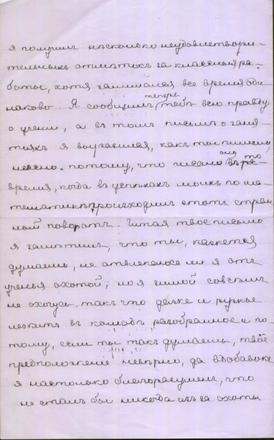 я получилъ нѣсколько неудовлетвори-
тельныхъ отмѣтокъ за классныя ра-
боты, хотя занимался все время оди-
наково. Я сообщилъ теперь тебѣ всю правду
о ученіи, а въ томъ письмѣ о заня-
тіяхъ я выразился, какъ ты пишешь
неясно потому, что писалъ въ то
время, когда въ успѣхахъ моихъ по ма-
тематикѣ происходилъ этотъ стран-
ный поворотъ. Читая твое письмо
я замѣтилъ, что ты, кажется
думаешь, не отвлекаюсь ли я отъ
ученья охотой; но я зимой совсѣмъ
не охочусь такъ что даже и ружье
лежитъ въ разобранное и по-
тому, если ты такъ думаешь, твое
предположеніе невѣрно, да вдобавокъ
я настолько благоразуменъ, что
не сталъ бы никогда изъ за охоты